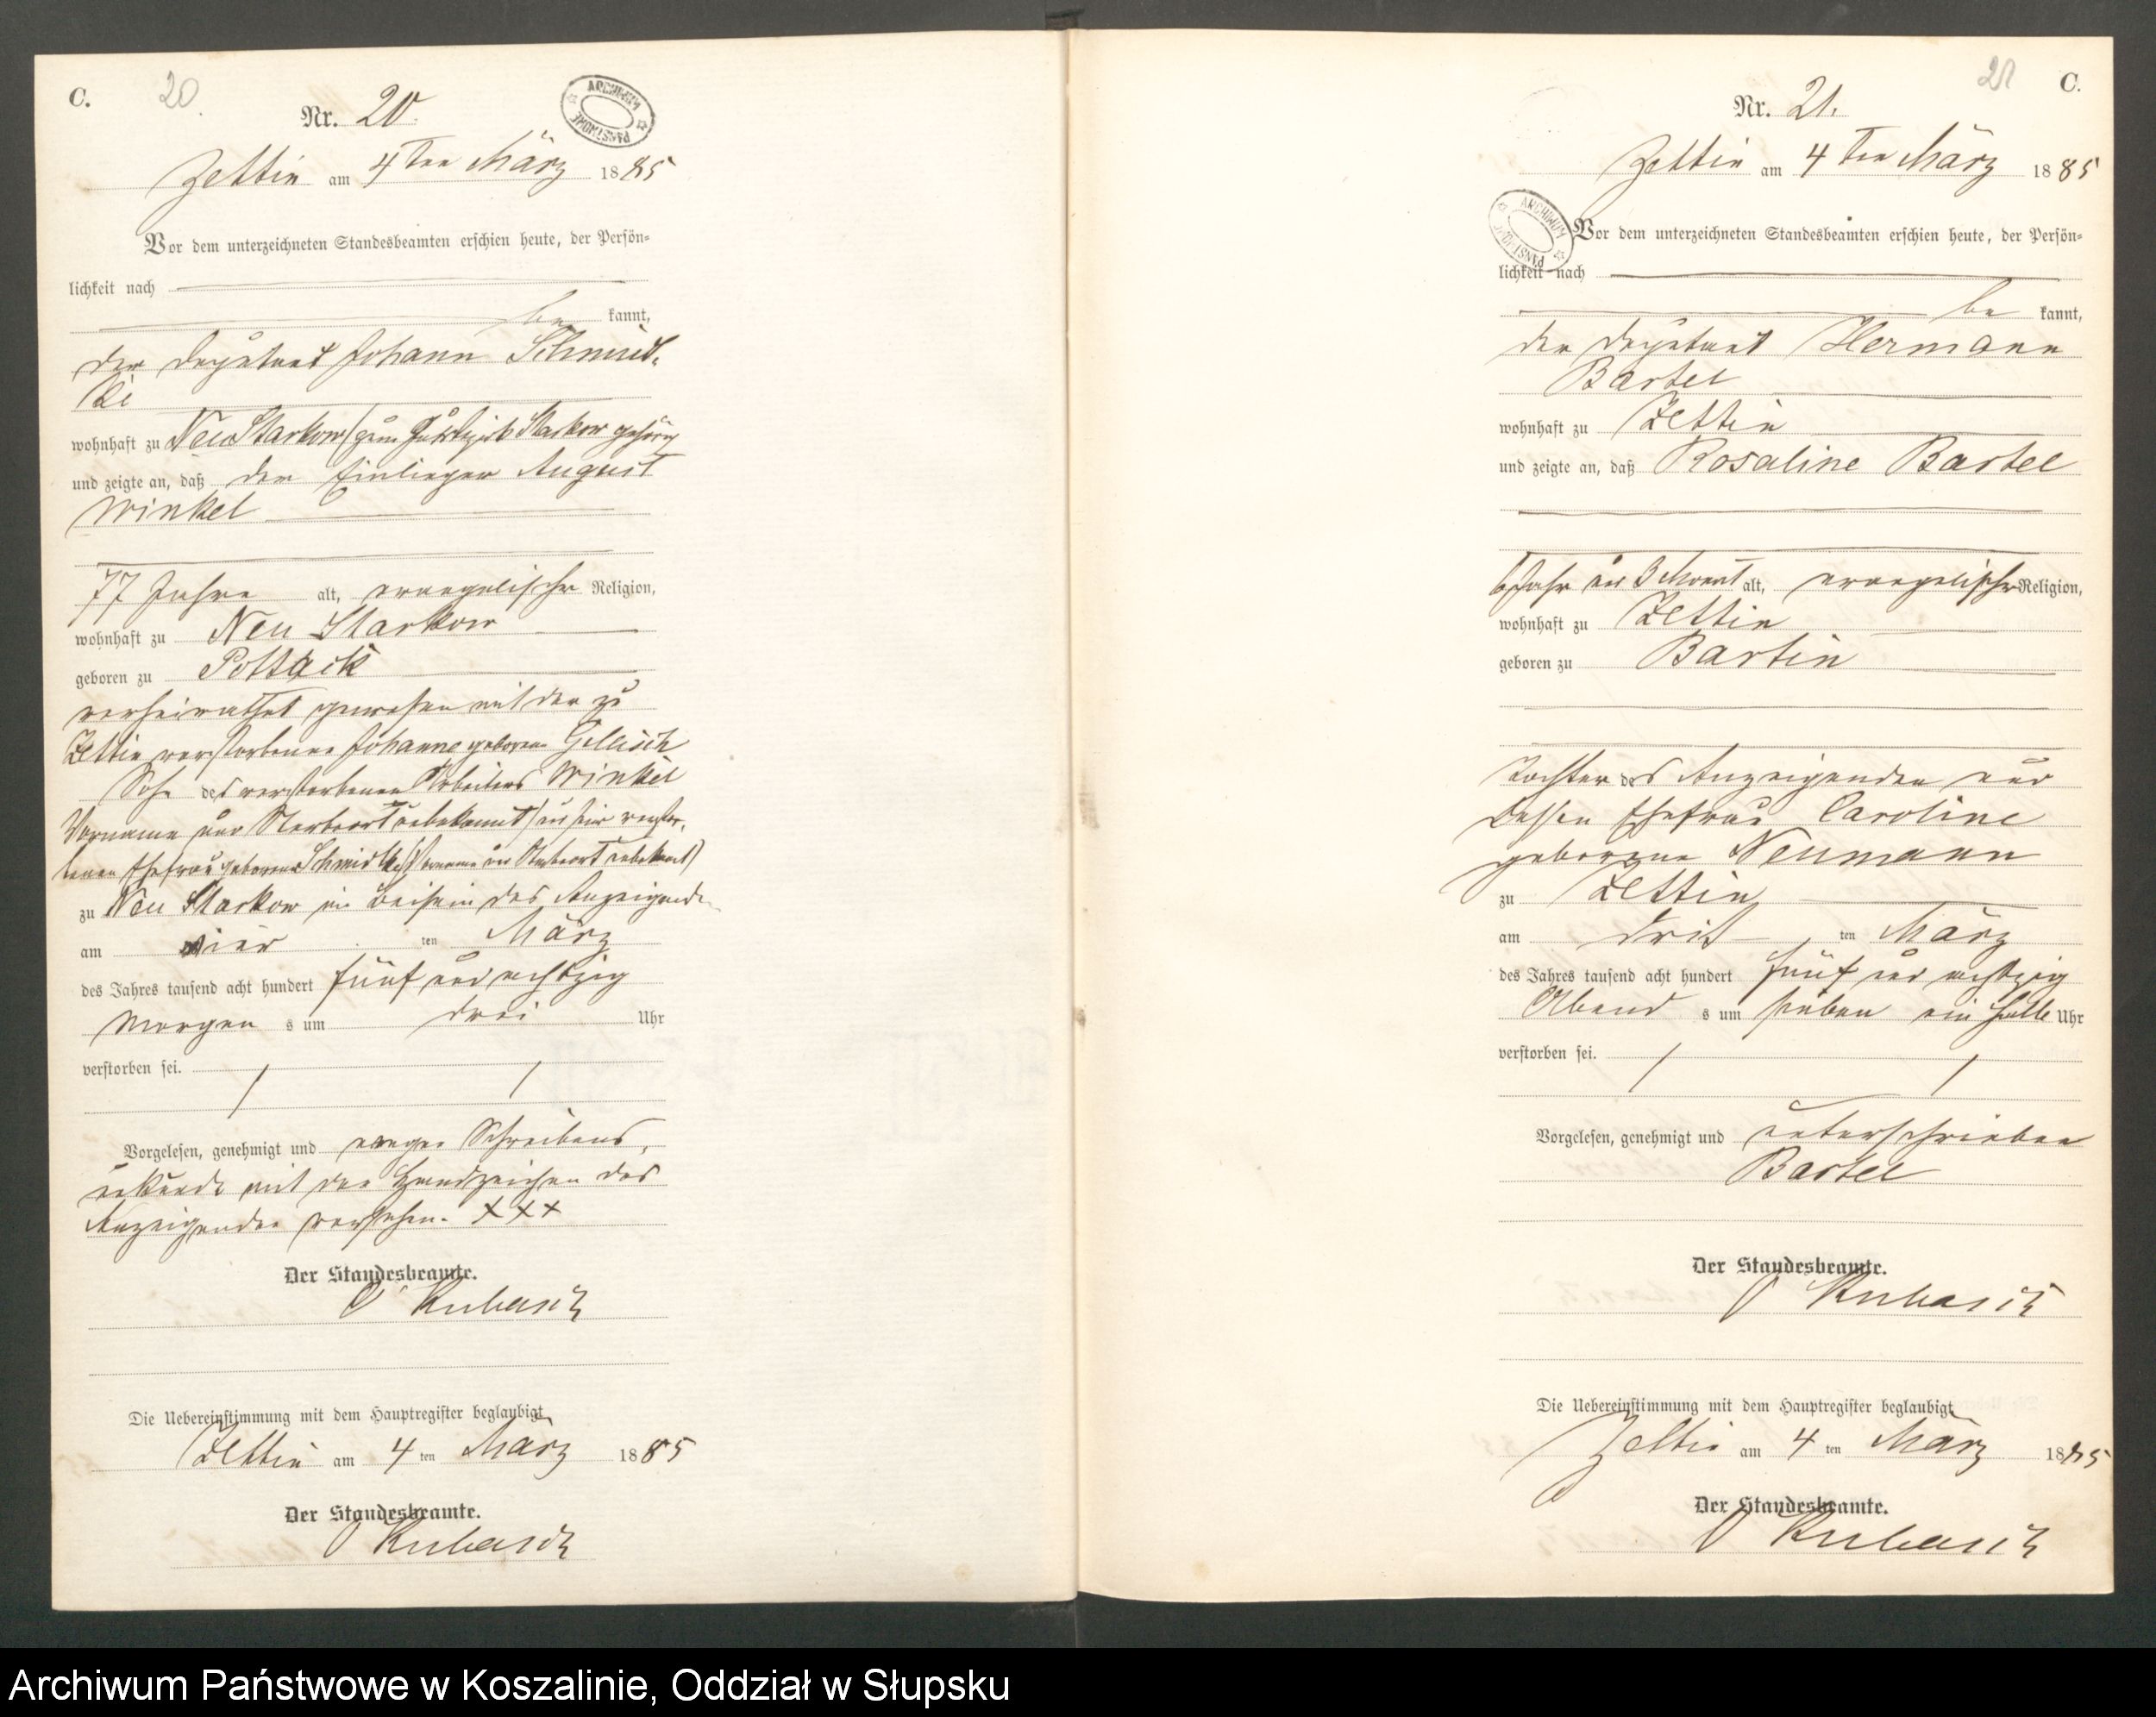 C. 20.
Nr. 20.
ARCHIWUM PAŃSTWOWE
Zettin am 4 ten März 1885
Vor dem unterzeichneten Standesbeamten erschien heute, der Persön-
lichkeit nach
be kannt,
der Deputant Johann Schmid-
ke
wohnhaft zu Neu Starkow (zum Gutsbezirk Starkow gehörig
und zeigte an, daß der Einlieger August
Winkel
77 Jahre alt, evangelischer Religion,
wohnhaft zu Neu Starkow
geboren zu Pottack
verheirathet gewesen mit der zu
Zettin verstorbenen Johanne geborene Gellisch
Sohn des verstorbenen Arbeiters Winkel
Vorname und Sterbeort unbekannt) und seiner verstor-
benen Ehefrau geborene Schmidtke (Vorname und Sterbeort unbekannt)
zu Neu Starkow in Beisein des Anzeigenden
am vier ten März
des Jahres tausend acht hundert fünf und achtzig
Morgen s um drei Uhr
verstorben sei.
Vorgelesen, genehmigt und wegen Schreibens-
unkunde mit den Handzeichen des
Anzeigenden versehen. XXX
Der Standesbeamte.
Kubasch
Die Uebereinstimmung mit dem Hauptregister beglaubigt
Zettin am 4 ten März 1885
Der Standesbeamte.
Kubasch
21 C.
Nr. 21.
Zettin am 4 ten März 1885
ARCHIWUM PAŃSTWOWE
Vor dem unterzeichneten Standesbeamten erschien heute, der Persön-
lichkeit nach
be kannt,
der Deputant Hermann
Bartel
wohnhaft zu Zettin
und zeigte an, daß Rosaline Bartel
6 Jahr und 3 Monat alt, evangelischer Religion,
wohnhaft zu Zettin
geboren zu Bartin
Tochter des Anzeigenden und
dessen Ehefrau Caroline
geborene Neumann
zu Zettin
am drit ten März
des Jahres tausend acht hundert fünf und achtzig
Abend s um sieben ein halb Uhr
verstorben sei.
Vorgelesen, genehmigt und unterschrieben
Bartel
Der Standesbeamte.
Kubasch
Die Uebereinstimmung mit dem Hauptregister beglaubigt
Zettin am 4 ten März 1885
Der Standesbeamte.
Kubasch
Archiwum Państwowe w Koszalinie, Oddział w Słupsku